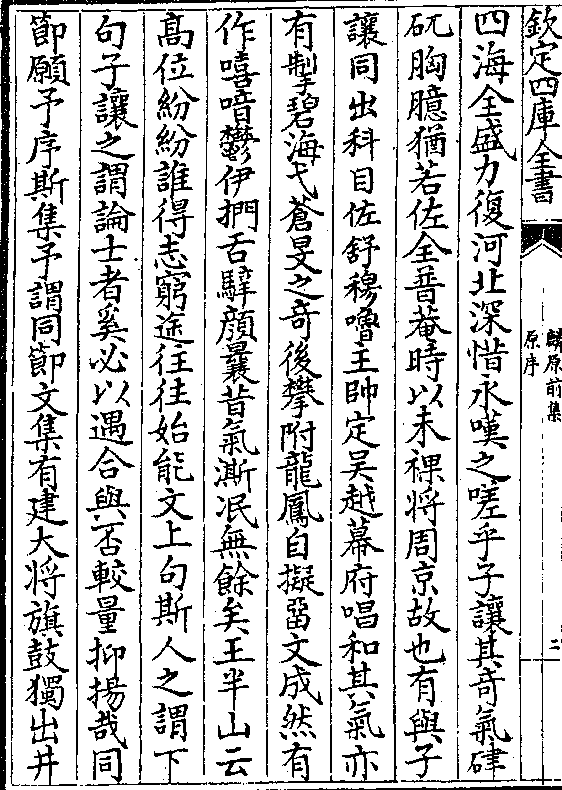 欽定四庫全書
麟原前集
原序
二
四海全盛力復河北深惜永嘆之嗟乎子讓其奇氣硉
矹胸臆猶若佐全普菴時以未裸將周京故也有與子
讓同出科目佐舒穆嚕主帥定吳越幕府唱和其氣亦
有掣碧海弋蒼旻之奇後攀附龍鳳自擬留文成然有
作嘻喑鬱伊捫舌騂顔曩昔氣澌泯無餘矣王半山云
髙位紛紛誰得志窮途往往始能文上句斯人之謂下
句子讓之謂論士者奚必以遇合與否較量抑揚哉同
節願予序斯集予謂同節文集有建大将旗鼓獨出井